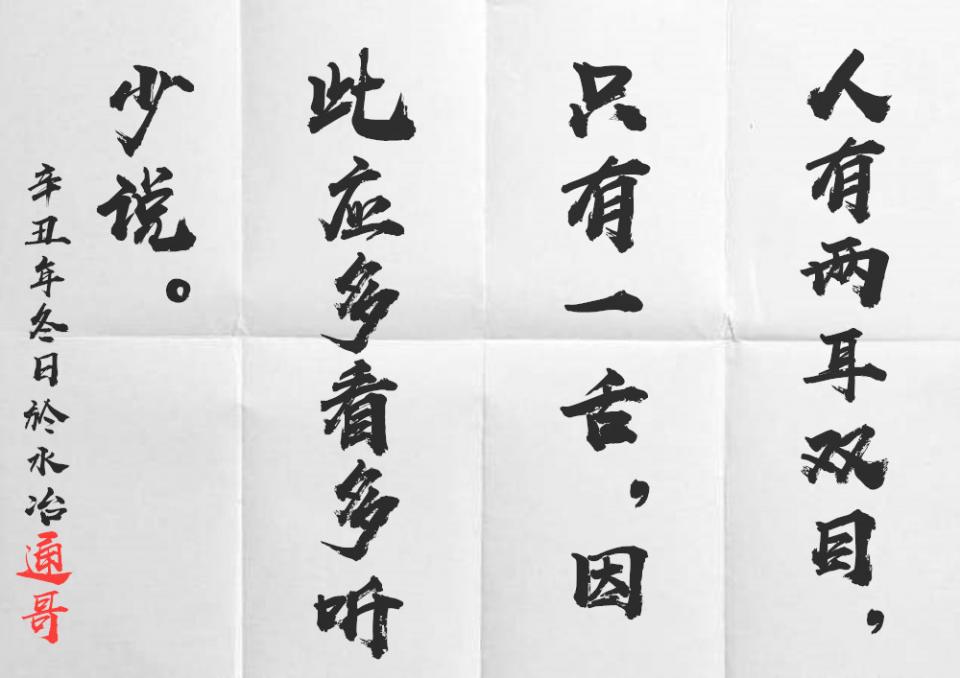 人有两耳双目，
只有一舌，因
此应多看多听
少说。
辛丑年冬日於水冶通哥